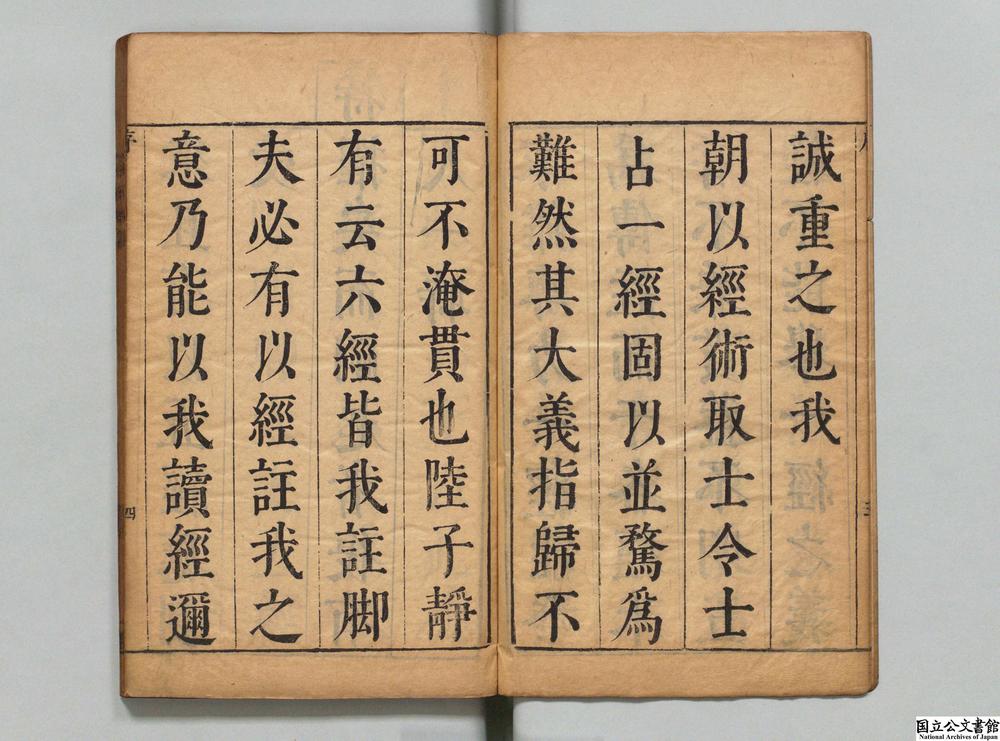 誠重之也我
朝以經術取士令士
占一經固以並騖爲
難然其大義指歸不
可不淹貫也陸子靜
有云六經皆我註脚
夫必有以經註我之
意乃能以我讀經邇
序
四
国立公文書館
National Archives of Japan